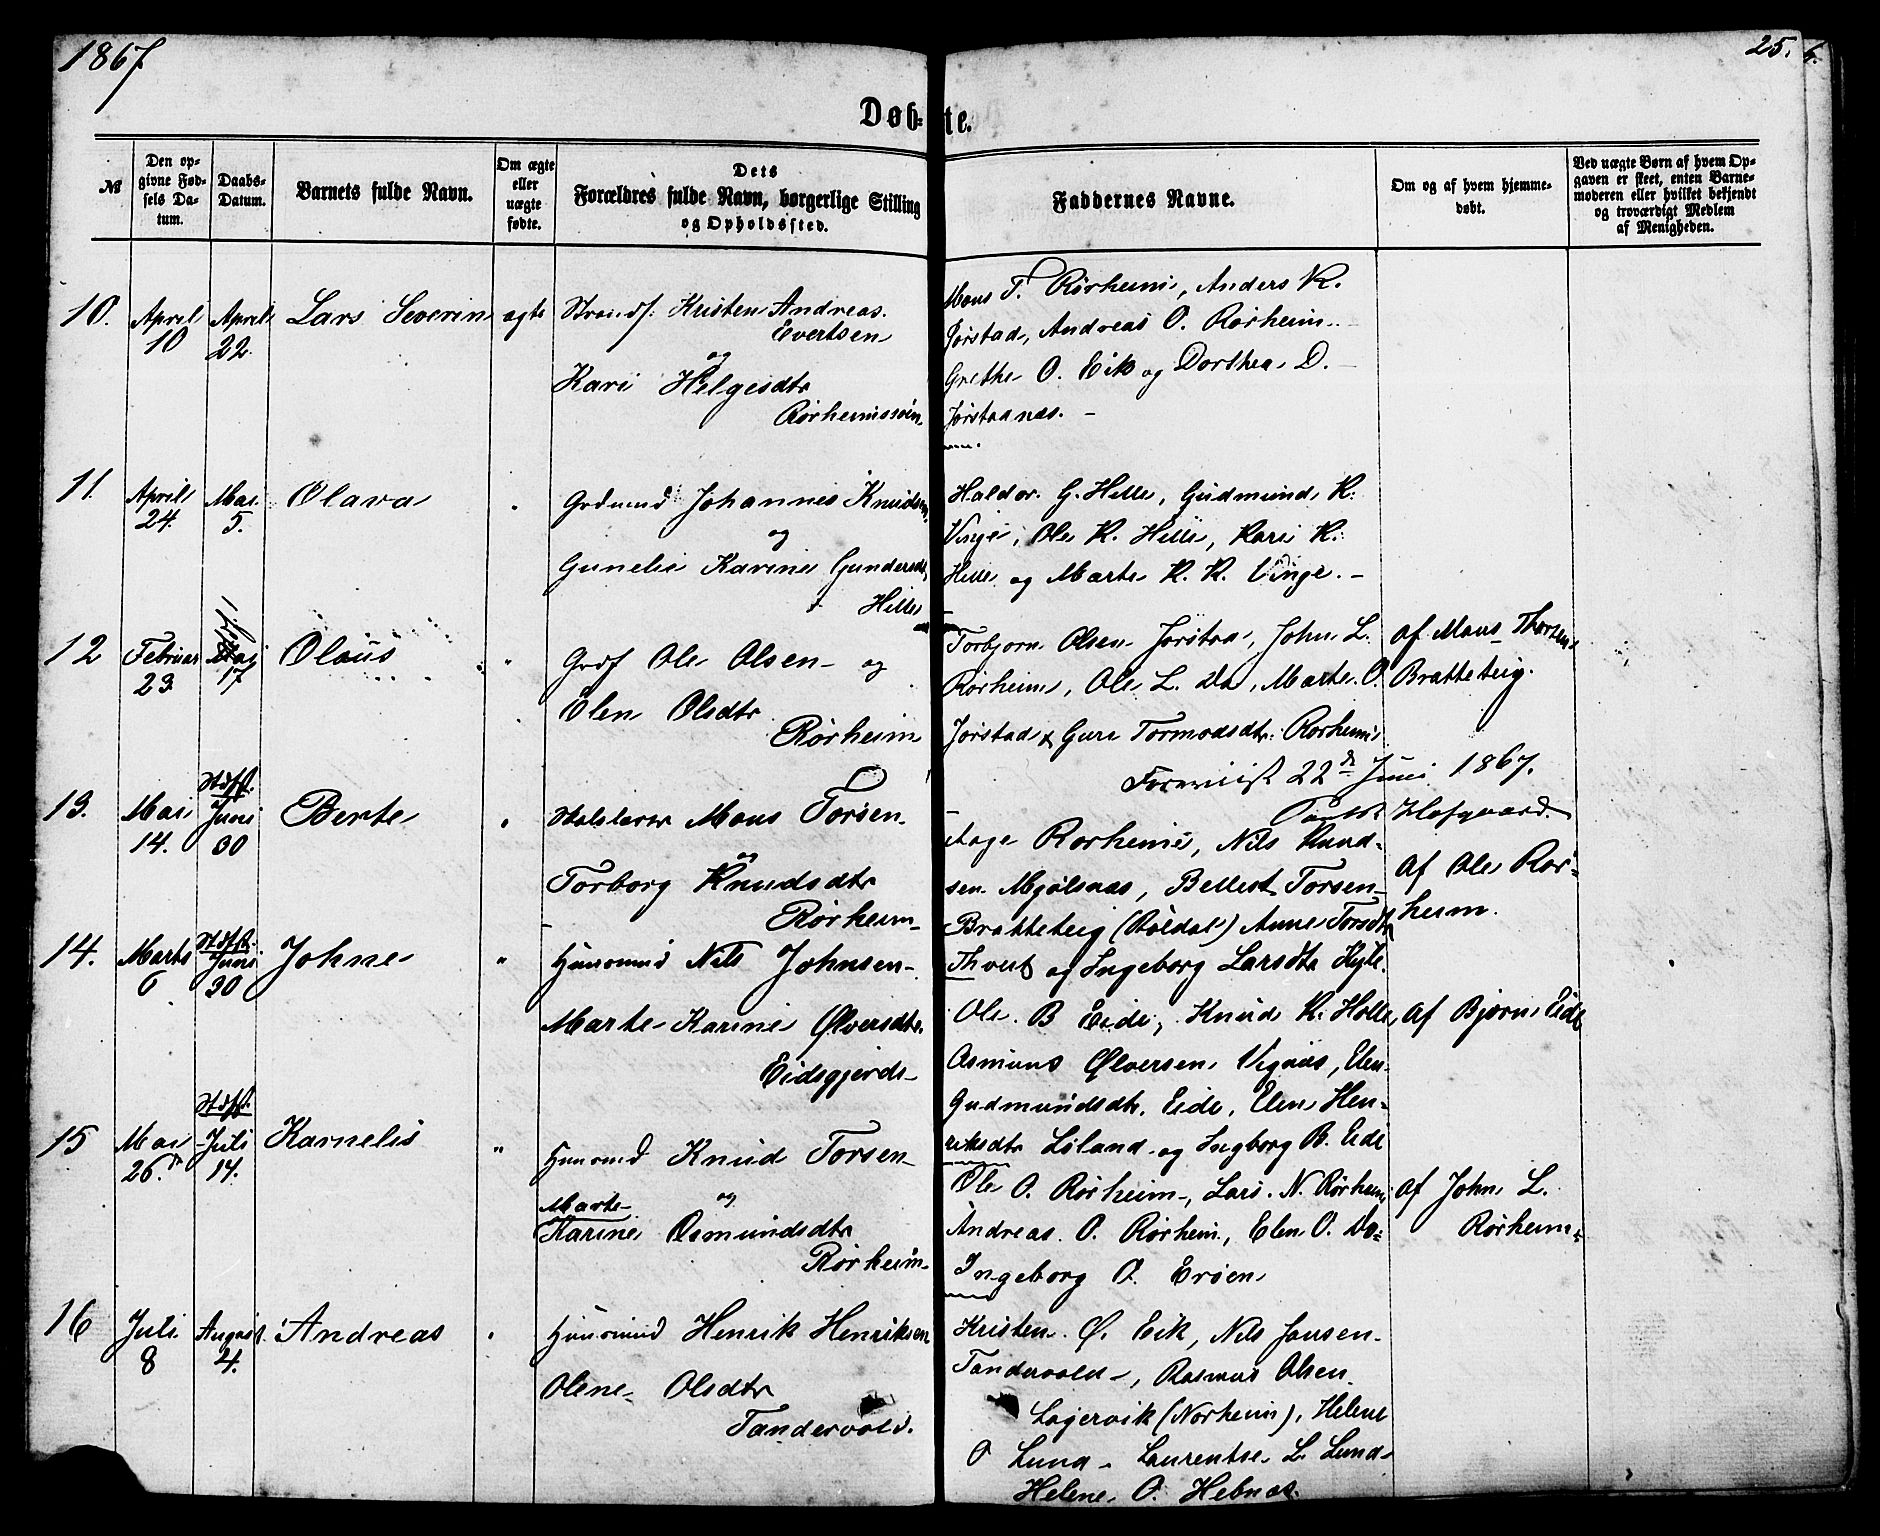 1867
25. 6.
Døb= te.
№
Den op-
givne Fød-
sels Da-
tum.
Daabs-
Datum.
Barnets fulde Navn.
Om ægte
eller
uægte
fødte.
Dets
Forældres fulde Navn, borgerlige Stilling
og Opholdssted.
Faddernes Navne.
Om og af hvem hjemme-
døbt.
Ved uægte Børn af hvem Op-
gaven er skeet, enten Barne-
moderen eller hvilket bekjendt
og troværdigt Medlem
af Menigheden.
10. April 10 April 22 Lars Severin ægte Strands. Kristen Andreas
Evertsen
og
Kari Helgesdtr
Mons T. Rørheim, Anders K.
Jørstad, Andreas O. Rørheim
Grethe O. Eik og Dorthea D.
Jørstadnæs. -
11. April 24. Mai 5. Olava Johannes Knudsen
og
Gunelie Karine Gundersdtr
Hille
Haldor G. Hille, Gudmund K.
Vinge, Ole K. Hille, Kari K.
Hille og Marte K. K. Vinge. -
12 Februar 23. Mai 17 Olaus " Grdf Ole Olsen og
Elen Olsdtr
Rørheim
Torbjørn Olsen Jørstad, John L.
Rørheim, Ole L. Do, Marte O.
Jørstad & Guri Tormodsdtr. Rørheim
af Mons Thorsen
Bratteteig.
22de Juni 1867.
Hofgaard
13. Mai 14. Stdfst. Juni 30 Berte " Skolelærer Mons Torsen
og
Torborg Knudsdtr
Rørheim
Aage Rørheim, Nils Knud-
sen Mjølsnæs, Bellest Torsen
Bratteteig (Røldal) Anne Torsdtr
Thvet og Ingeborg Larsdtr
af Ole Rør-
heim.
14. Marts 6 Stdfst. Juni 30 Johne " Huusmd Nils Johnsen
Marte Karine Ølversdtr.
Eidsgjerde
Ole B Eide, Knud K. Holle,
Osmund Ølversen Vignæs, Elen
Gudmundsdtr. Eide, Elen Hen-
riksdtr Løland og Ingborg B. Eide
af Bjørn Eide
15 Mai 26. Stdfst. Juli 14. Karnelis " Huusmd Knud Torsen
og
Marte
Karine Osmundsdtr
Rørheim
Ole O. Rørheim, Lars N. Rørheim
Andreas O. Rørheim, Elen O. Do-
Ingeborg O. Erøen
af John L.
Rørheim
16 Juli 8 August 4. Andreas " Huusmd Henrik Henriksen
Olene Olsdtr
Tandervold.
Kristen Ø. Eik, Nils Jansen
Tandervold, Rasmus Olsen
Lagervik (Norheim), Helene
O Lund - Laurentse L. Lund
Helene O. Hebnæs.